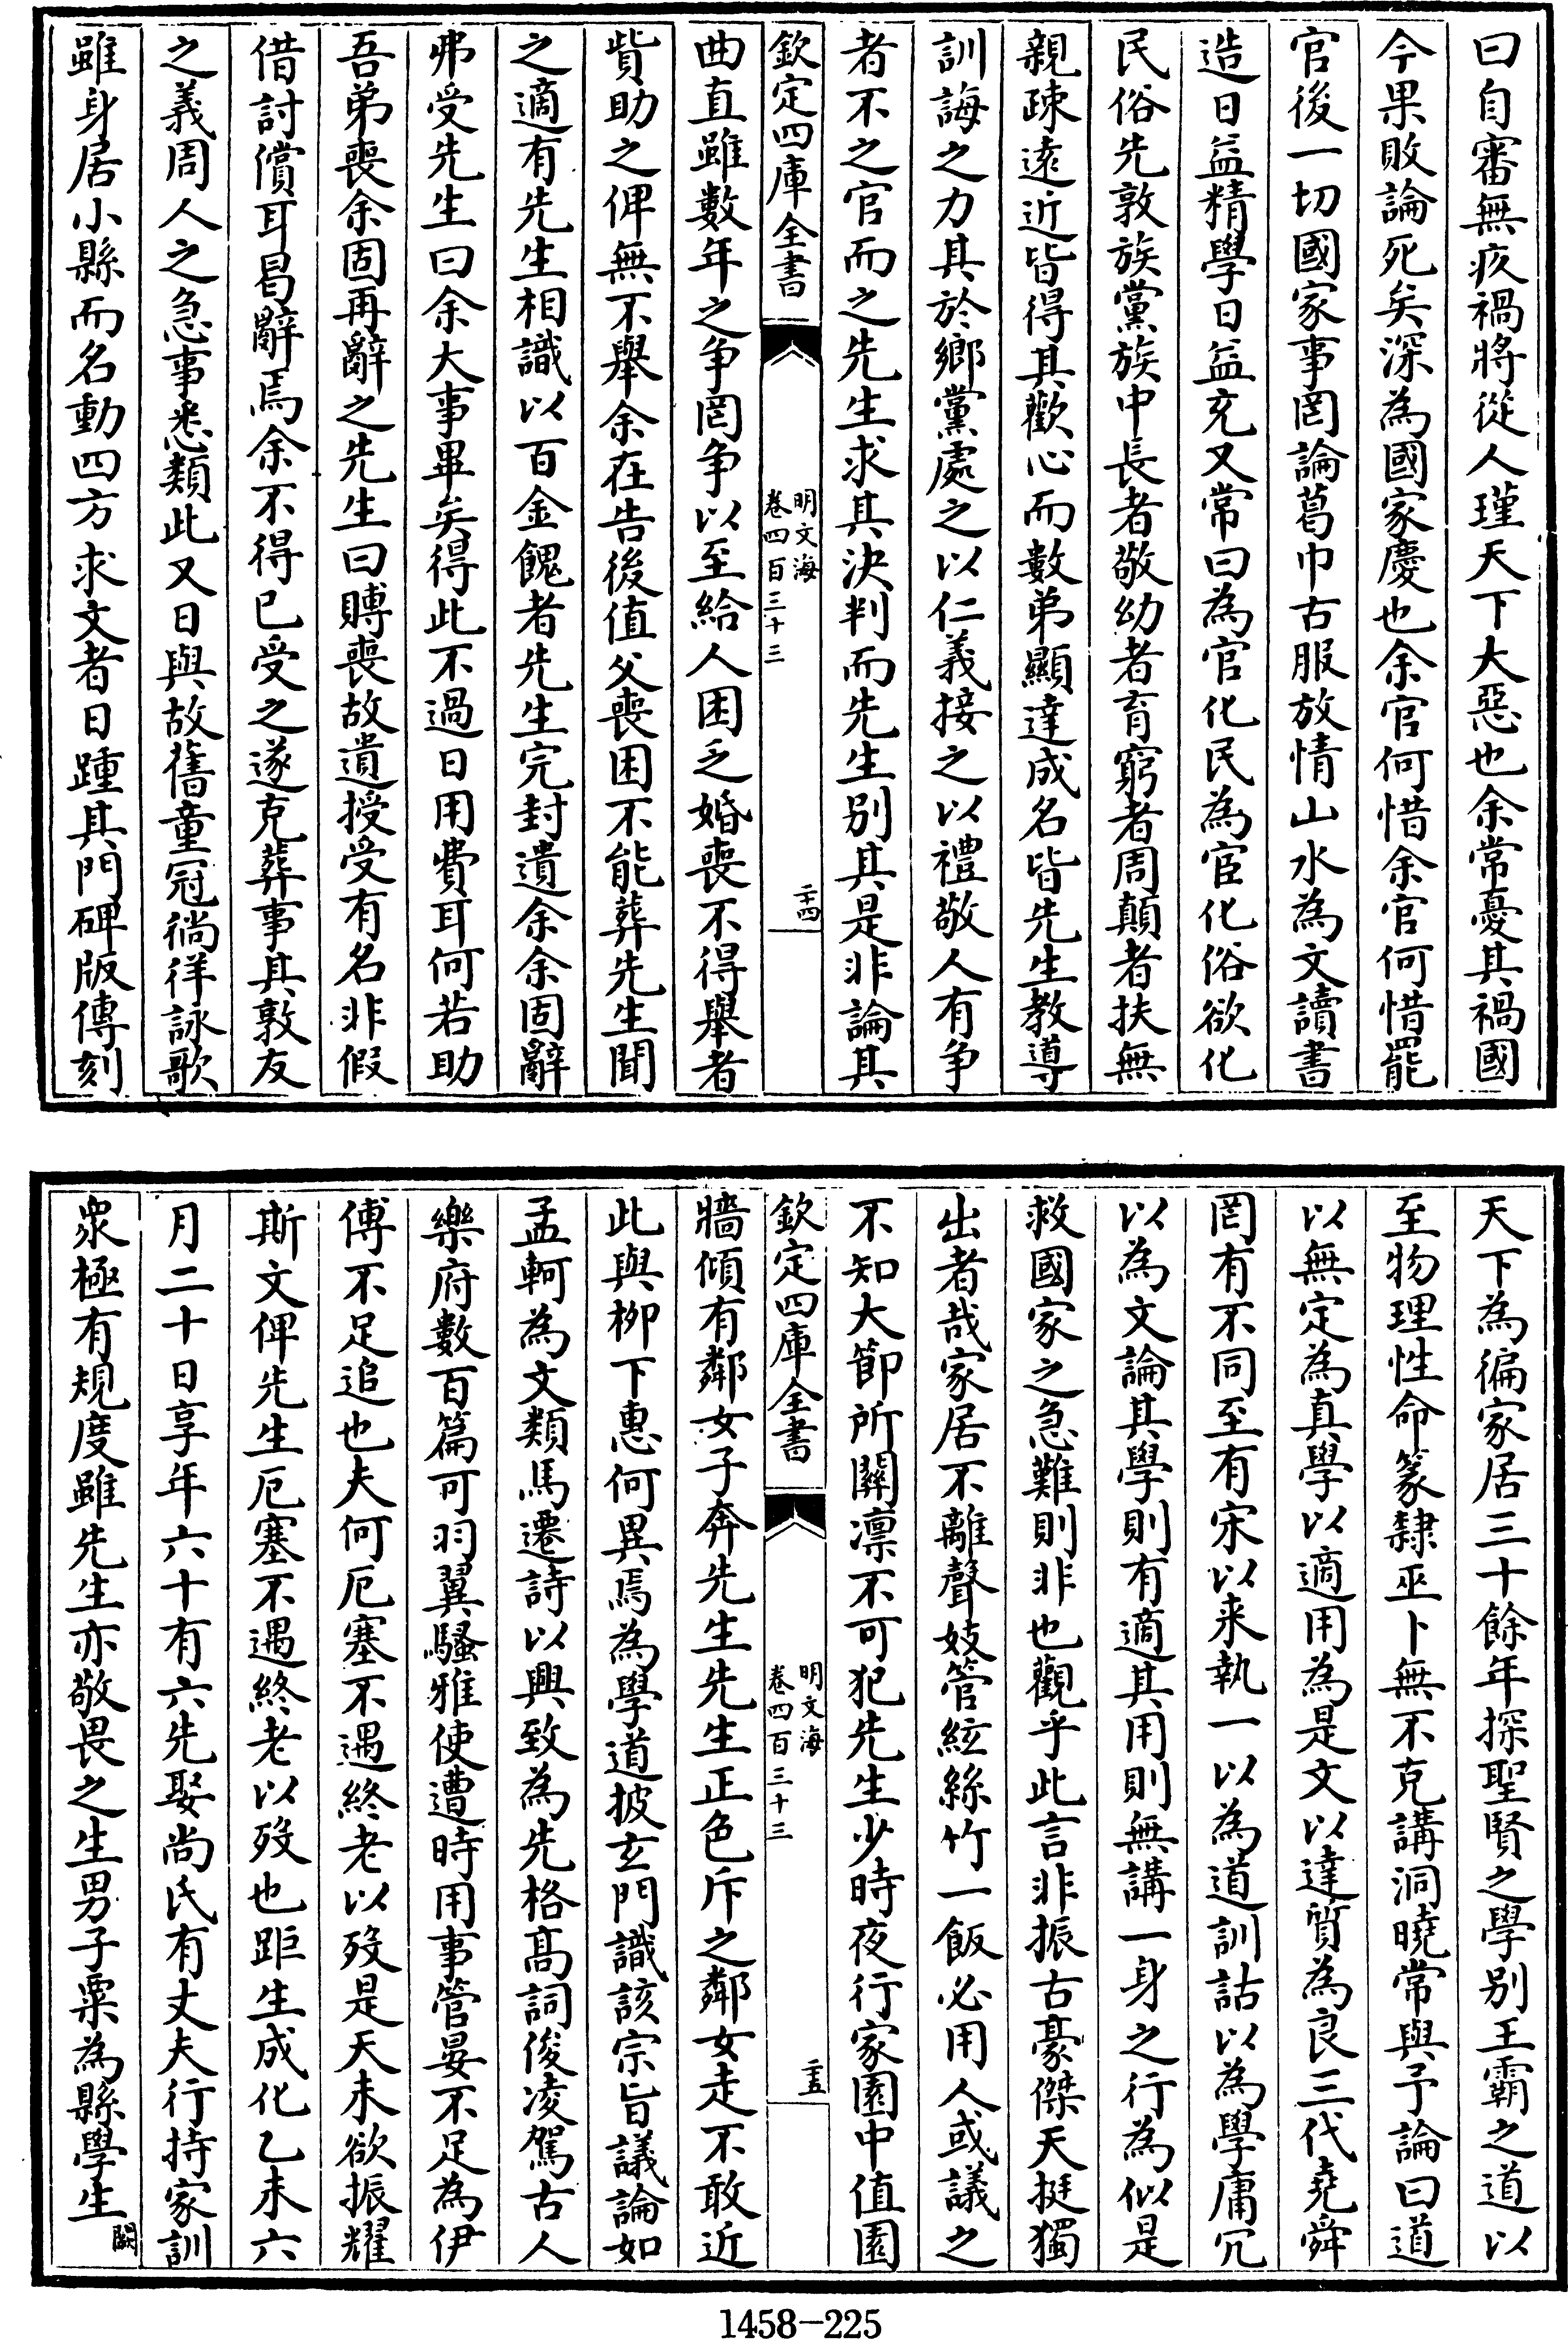 曰自審無疚禍將從人瑾天下大惡也余常憂其禍國
今果敗論死矣深為國家慶也余官何惜余官何惜罷
官後一切國家事罔論葛巾古服放情山水為文讀書
造日益精學日益充又常曰為官化民為宦化俗欲化
民俗先敦族黨族中長者敬幼者育窮者周顛者扶無
親疎遠近皆得其歡心而數弟顯達成名皆先生教導
訓誨之力其於鄉黨處之以仁義接之以禮敬人有争
者不之官而之先生求其決判而先生別其是非論其
欽定四庫全書
明文海
卷四百三十三
二十四
曲直雖數年之争罔争以至給人困乏婚喪不得舉者
貲助之俾無不舉余在告後值父喪困不能葬先生聞
之適有先生相識以百金餽者先生完封遺余余固辭
弗受先生曰余大事畢矣得此不過日用費耳何若助
吾弟喪余固再辭之先生曰賻喪故遺授受有名非假
借討償耳曷辭焉余不得已受之遂克葬事其敦友
之義周人之急事悉類此又日與故舊童冠徜徉詠歌
雖身居小縣而名動四方求文者日踵其門碑版傳刻
天下為徧家居三十餘年探聖賢之學別王霸之道以
至物理性命篆隸巫卜無不克講洞曉常與予論曰道
以無定為真學以適用為是文以達質為良三代堯舜
罔有不同至有宋以来執一以為道訓詁以為學庸冗
以為文論其學則有適其用則無講一身之行為似是
救國家之急難則非也觀乎此言非振古豪傑天挺獨
出者哉家居不離聲妓管絃絲竹一飯必用人或議之
不知大節所關凛不可犯先生少時夜行家園中值園
欽定四庫全書
明文海
卷四百三十三
二十五
牆傾有鄰女子奔先生先生正色斥之鄰女走不敢近
此與栁下惠何異焉為學道披玄門識該宗旨議論如
孟軻為文類馬遷詩以興致為先格髙詞俊凌駕古人
樂府數百篇可羽翼騷雅使遭時用事管晏不足為伊
傅不足追也夫何厄塞不遇終老以歿是天未欲振耀
斯文俾先生厄塞不遇終老以歿也距生成化乙未六
月二十日享年六十有六先娶尚氏有丈夫行持家訓
衆極有規度雖先生亦敬畏之生男子粟為縣學生闕
1458-225